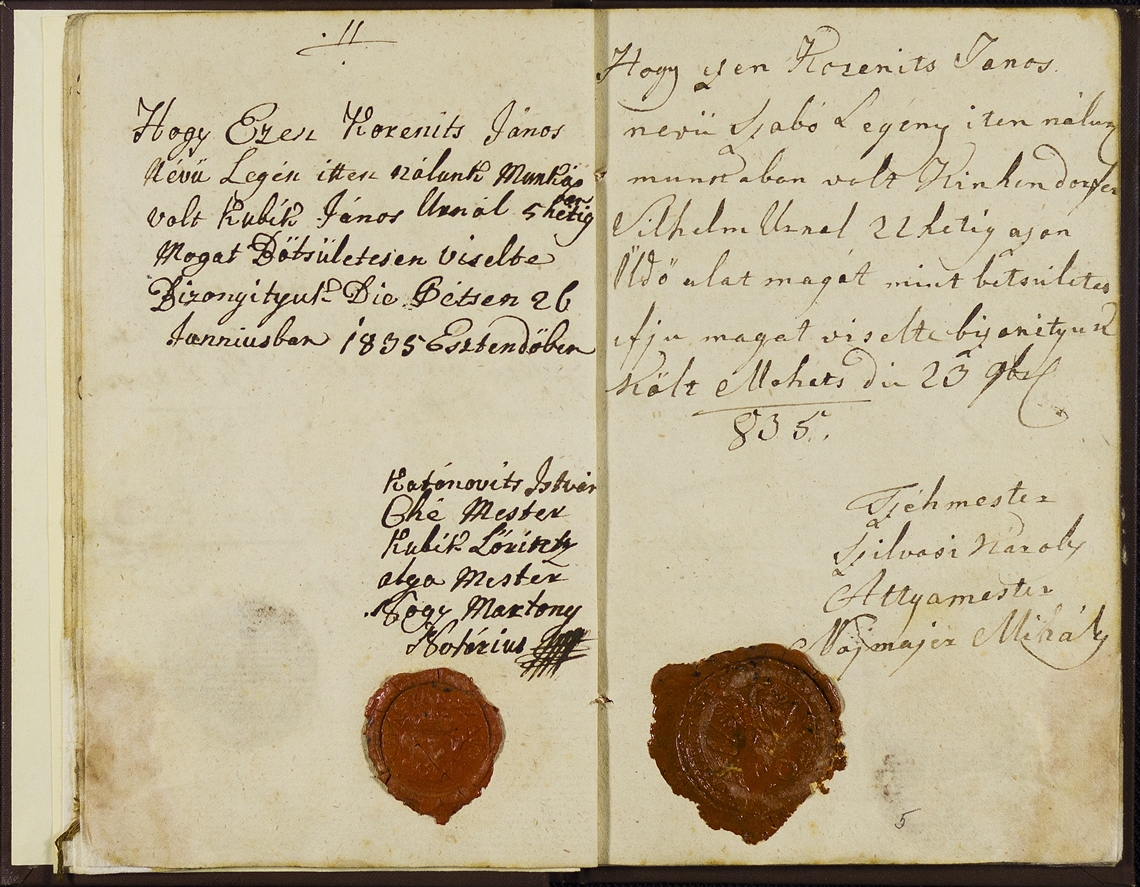 11
Hogy Ezen Korenits János
Névü Legén itten nálunk Munkás
volt Kubik János Urnál 5 hétig
Magat Bötsületesen viselte
Bizongityuk Die Pétsen 26
Junniusban 1835 Esztendöben
Katónovits István
Ché Mester
Kubik Lörintz
atya Mester
Nogy Martony
Notérius
Hogy ezen Kozenits Janos
nevü Szabó Legény iten nálunk
munkaban volt Kinkendorfer
Vilhelm Urnal 22 hetig azon
Üdö alat magát mint betsületes
ifju magat viselte bizonityuk
Költ Mohats die 23 9br
835.
Tzéhmester
Szilvasi Károly
Attyamester
Majmajer Mihály
5